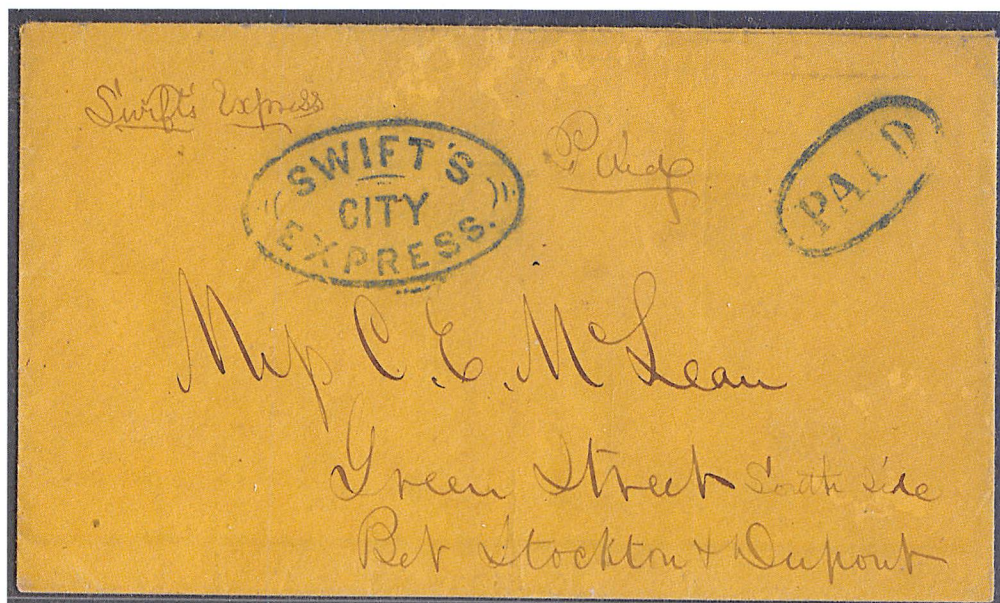 Swift's Express
SWIFT'S
CITY
EXPRESS.
Paid
PAID
Miss C. E. McLean
Green Street South side
Bet Stockton & Dupont